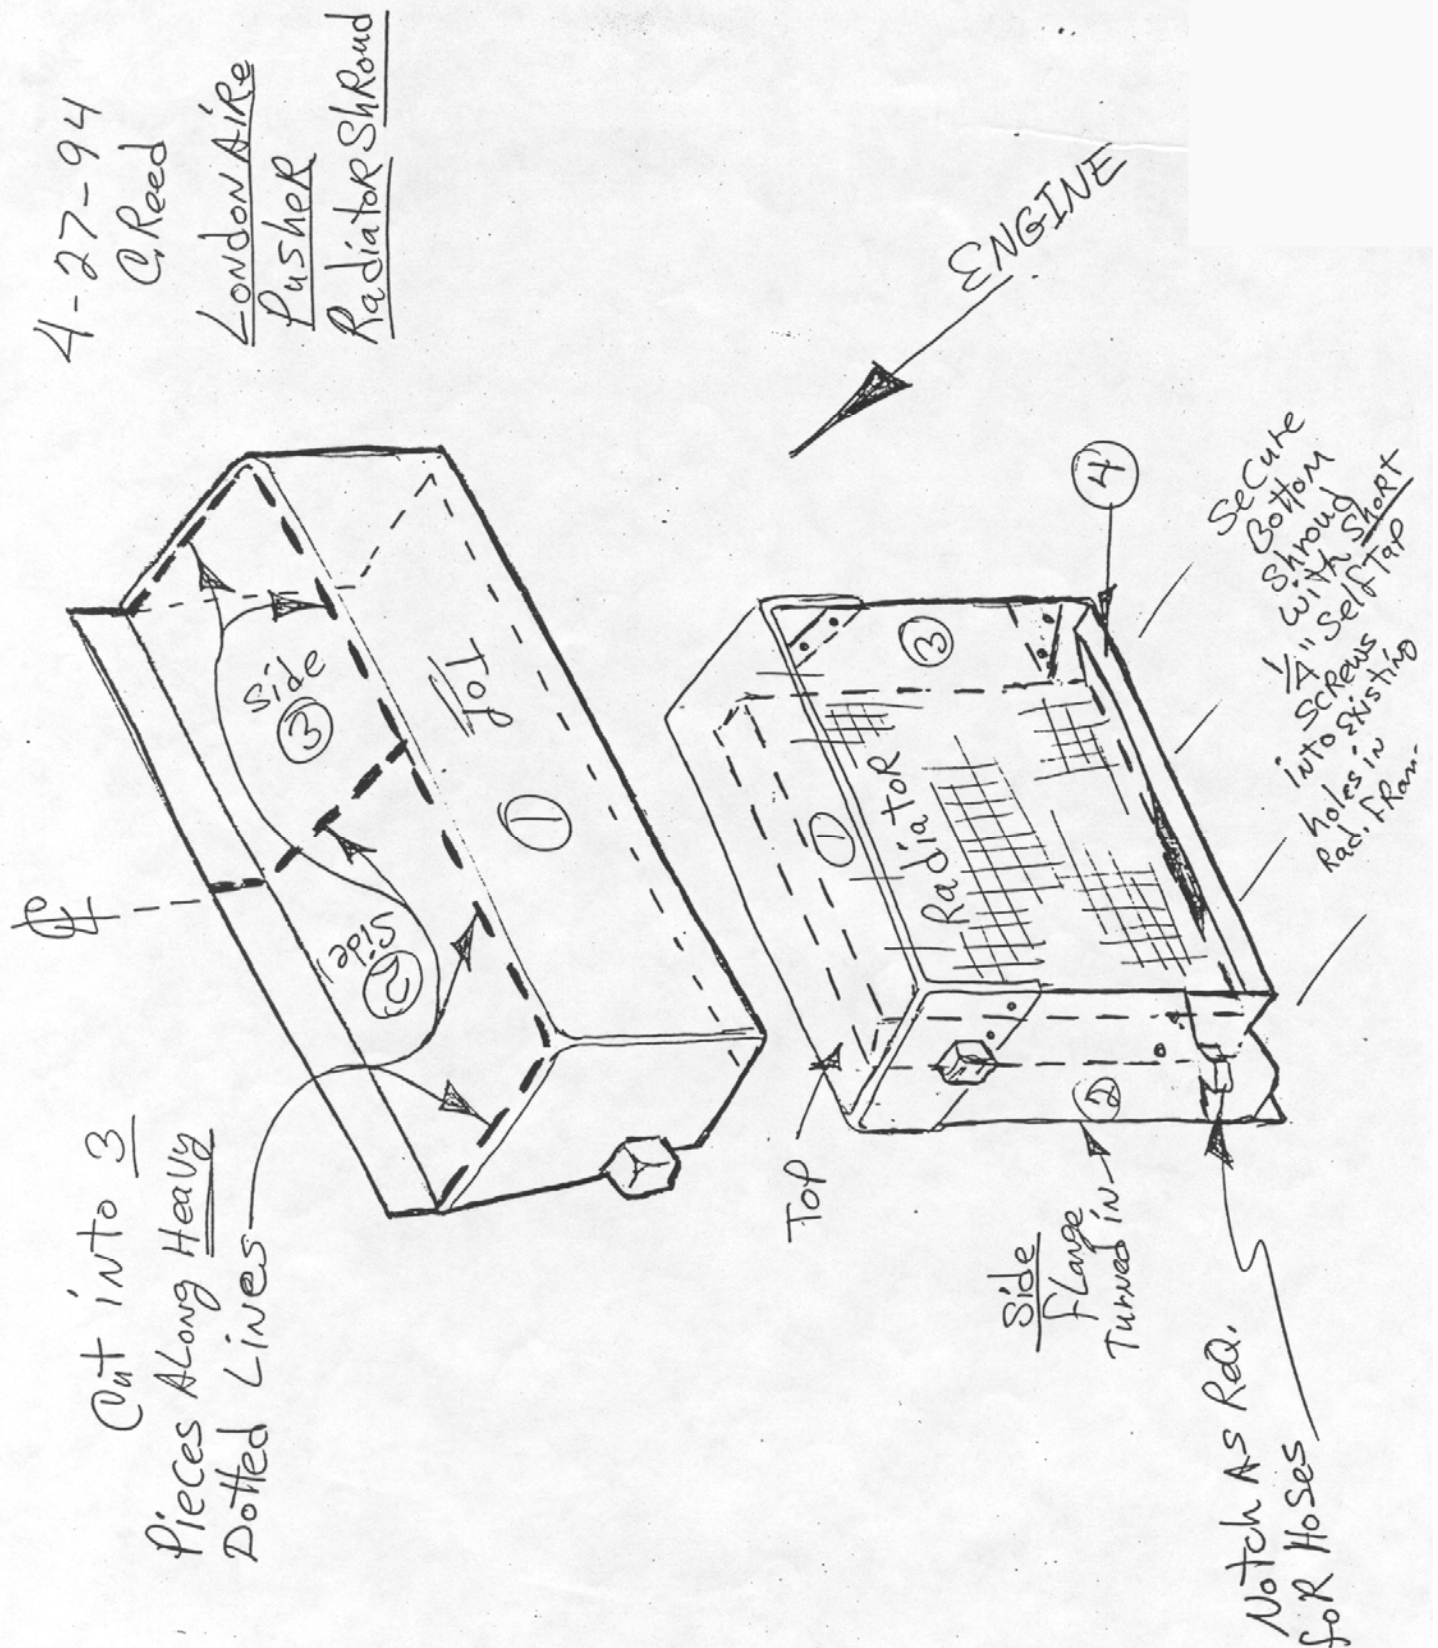 4-27-94
C.Reed
LondonAire
Pusher
Radiator Shroud
Cut into 3
Pieces Along Heavy
Dotted Lines
℄
Side
②
Side
③
Top
①
ENGINE
①
Radiator
③
④
Top
②
Side
Flange
Turned in
Notch As Req.
for Hoses
Secure
Bottom
Shroud
with Short
1/4" Self Tap
Screws
into Existing
holes in
Rad.